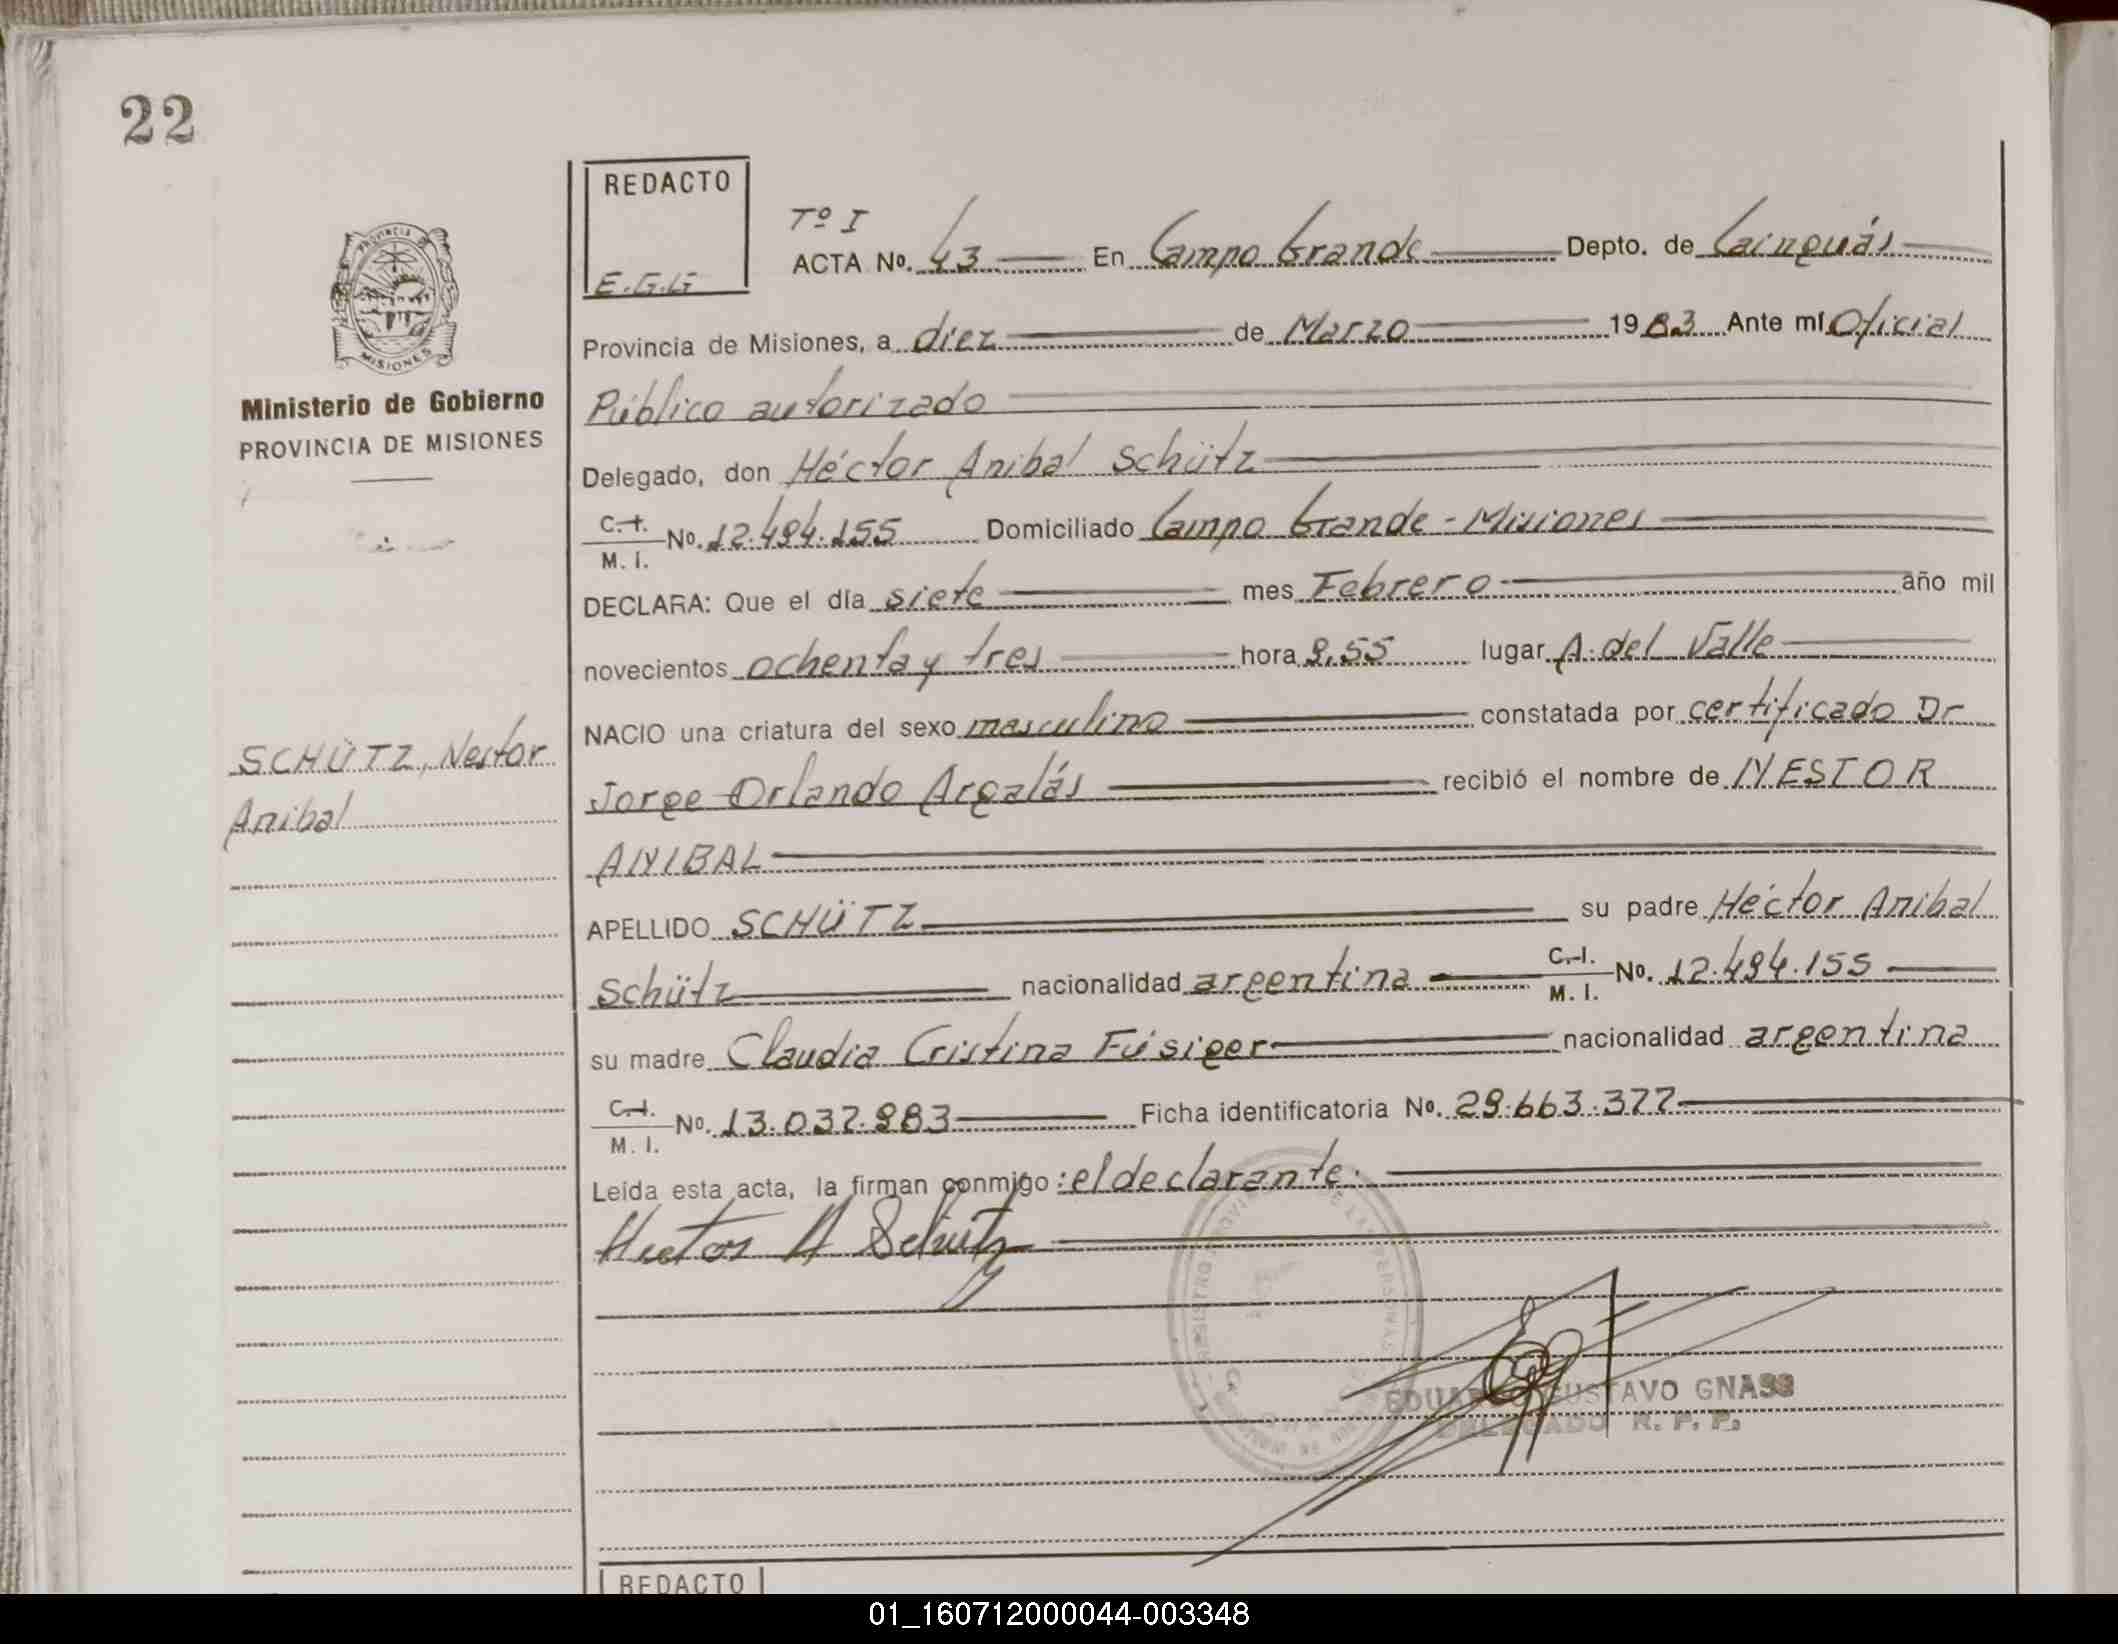 22
REDACTO
E.G.G
Tº I
ACTA No. 43 En Campo Grande Depto. de Cainguás
Provincia de Misiones, a diez de Marzo 1983 Ante mí Oficial
Público autorizado
Delegado, don Héctor Anibal Schütz
C.I.
M. I. No. 12.494.155 Domiciliado Campo Grande - Misiones
DECLARA: Que el día siete mes Febrero año mil
novecientos ochenta y tres hora 9,55 lugar A. del Valle
NACIO una criatura del sexo masculino constatada por certificado Dr
Jorge Orlando Argalás recibió el nombre de NESTOR
ANIBAL
APELLIDO SCHÜTZ su padre Héctor Anibal
Schütz nacionalidad argentina C.I.
M. I. No. 12.494.155
su madre Claudia Cristina Fúsiger nacionalidad argentina
C.I.
M. I. No. 13.037.983 Ficha identificatoria No. 29.663.377
Leída esta acta, la firman conmigo: el declarante.
Hector A Schutz
EDUARDO GUSTAVO GNASS
DELEGADO R. P. P.
REDACTO
PROVINCIA
MISIONES
Ministerio de Gobierno
PROVINCIA DE MISIONES
SCHÜTZ, Nestor
Anibal
01_160712000044-003348